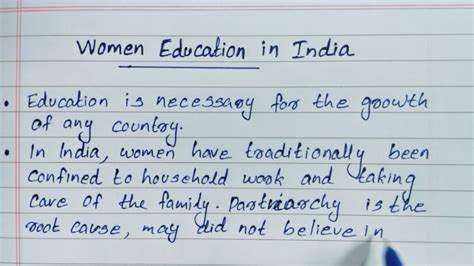 Women Education in India
• Education is necessary for the growth
of any country.
• In India, women have traditionally been
confined to household work and taking
care of the family. Partriarchy is the
root cause, may did not believe in